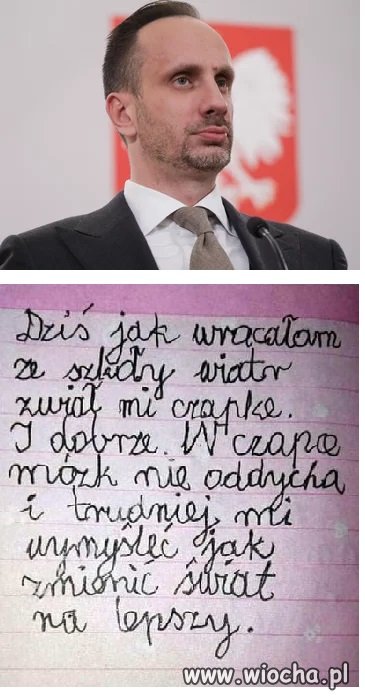 Dziś jak wracałam
ze szkoły wiatr
zwiał mi czapkę.
I dobrze. W czapce
mózk nie oddycha
i trudniej mi
wymyśleć jak
zmienić świat
na lepszy.
www.wiocha.pl